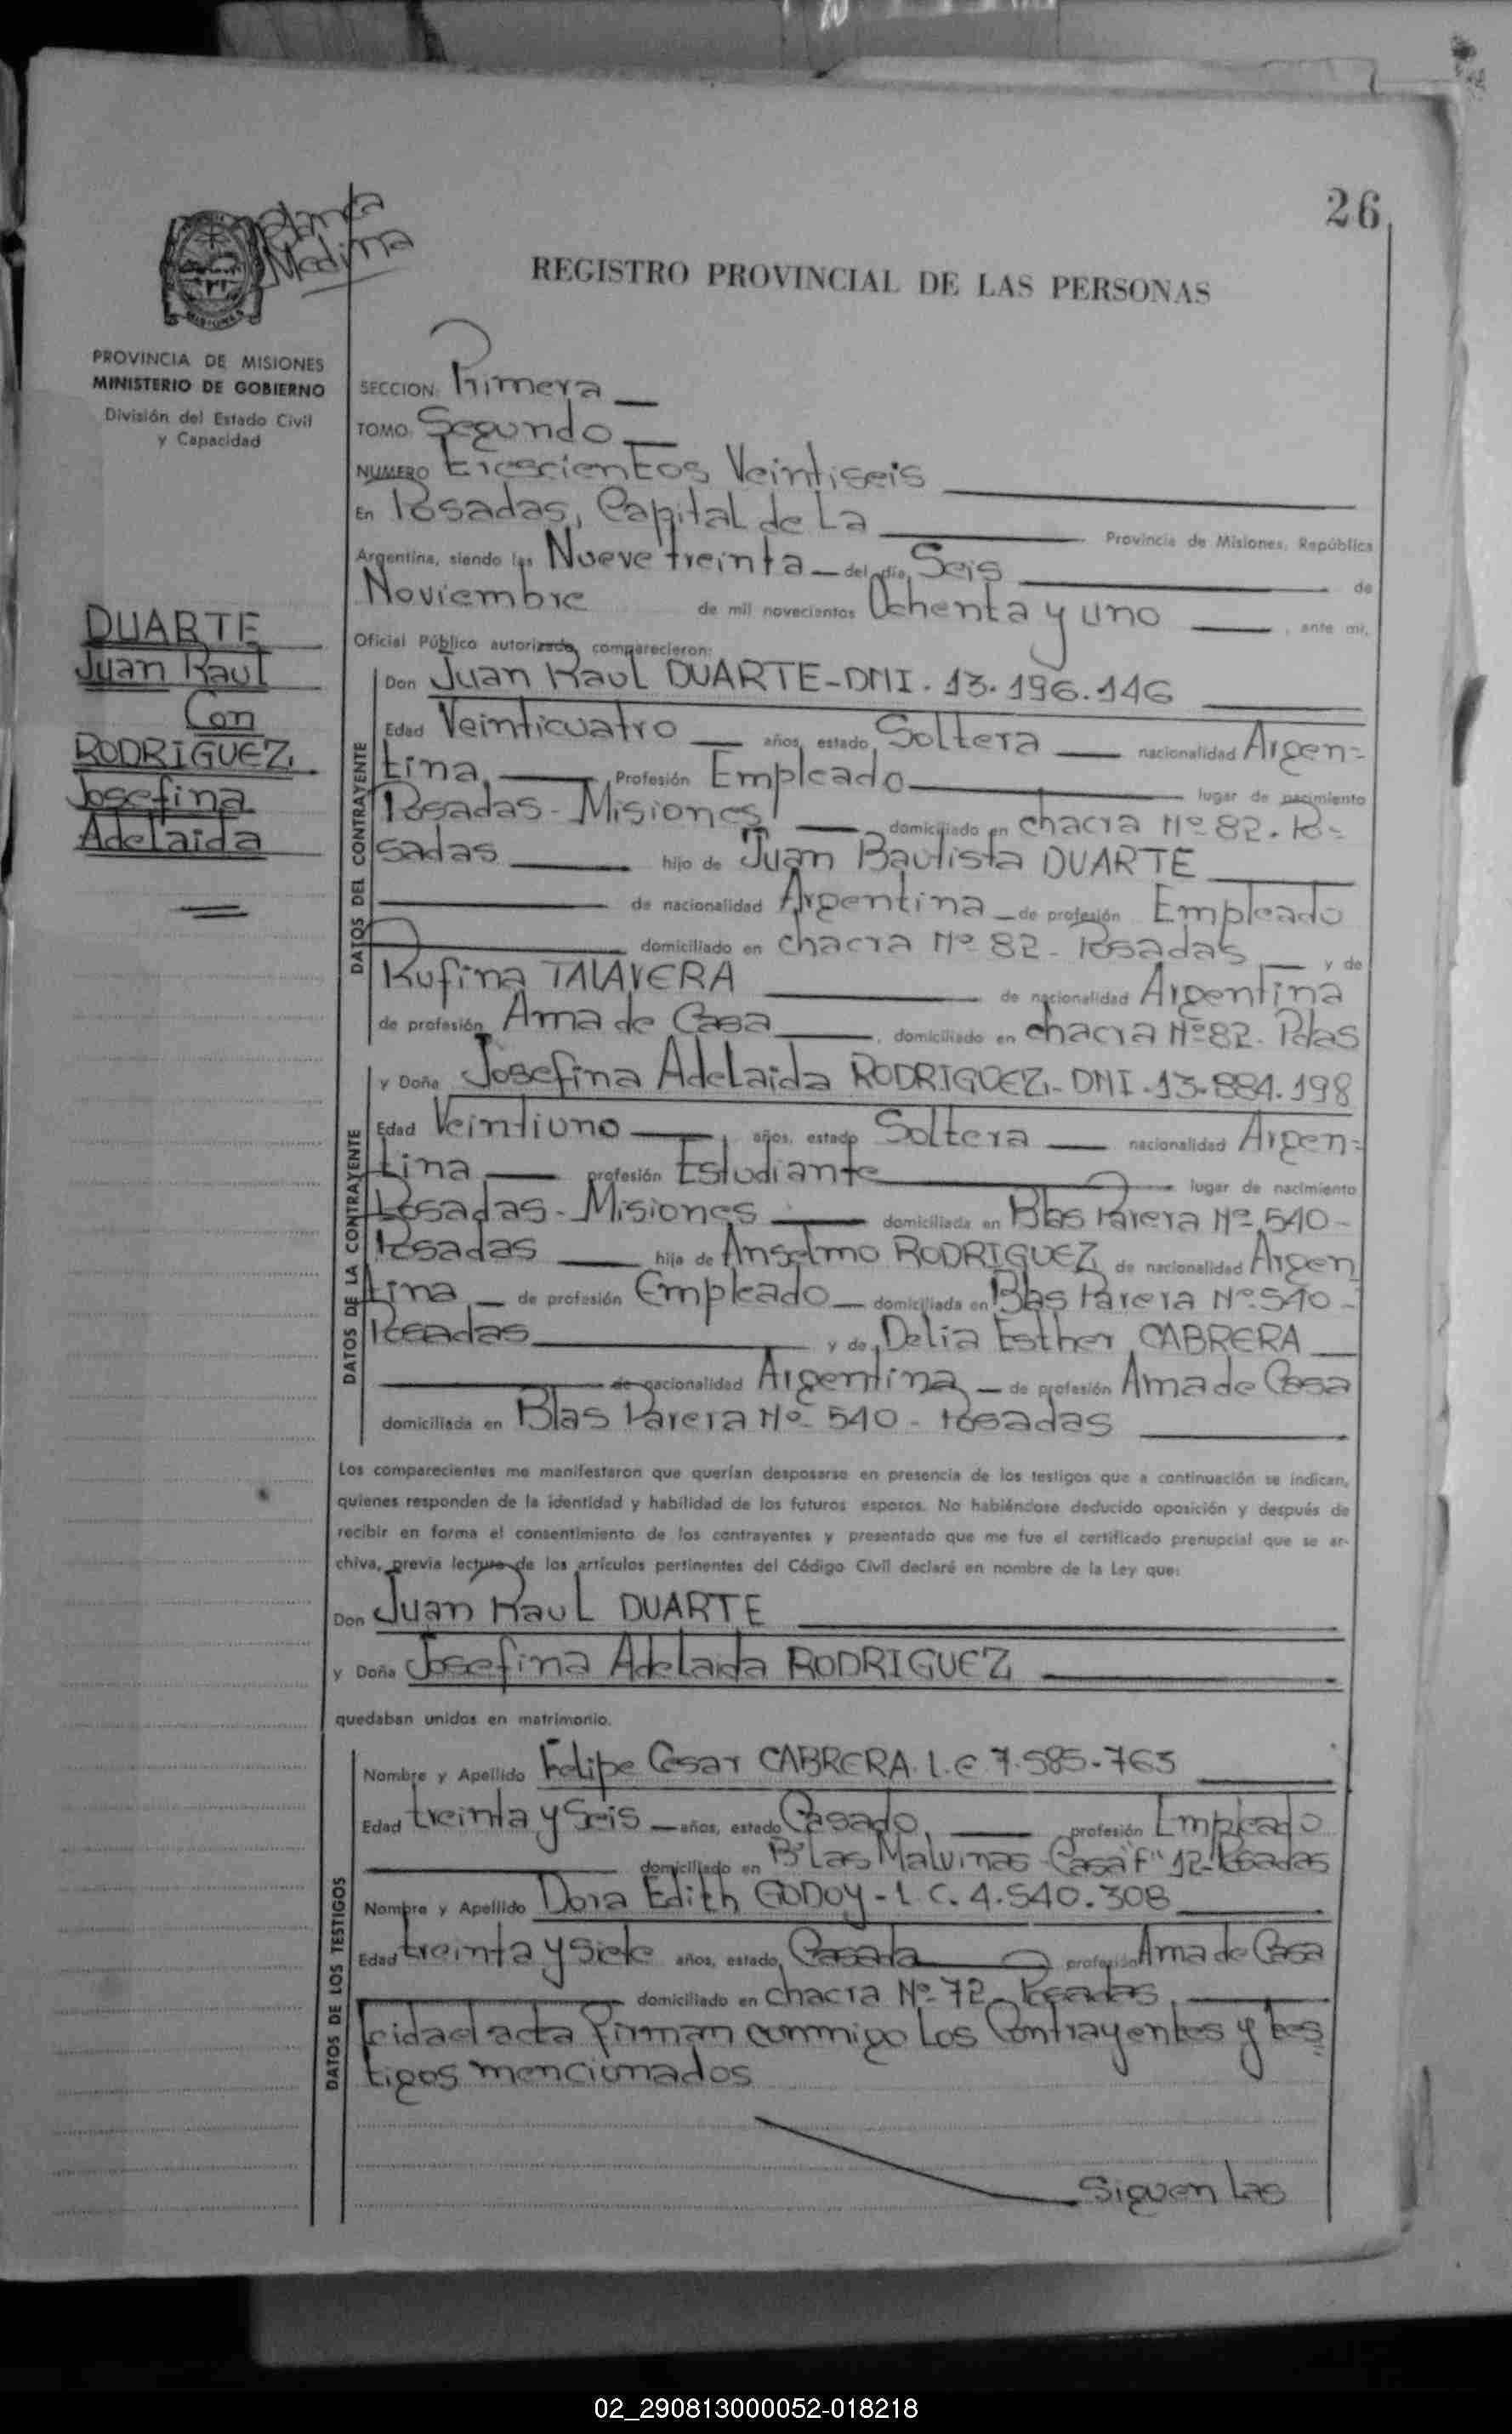 26
Blanca
Medina
REGISTRO PROVINCIAL DE LAS PERSONAS
MISIONES
PROVINCIA DE MISIONES
MINISTERIO DE GOBIERNO
División del Estado Civil
y Capacidad
DUARTE
Juan Raul
Con
RODRIGUEZ,
Josefina
Adelaida
SECCION: Primera
TOMO: Segundo
NUMERO trescientos Veintiseis
En Posadas, Capital de La Provincia de Misiones, República
Argentina, siendo las Nueve treinta del día, Seis de
Noviembre de mil novecientos Ochenta y uno, ante mí,
Oficial Público autorizado, comparecieron:
DATOS DEL CONTRAYENTE
Don Juan Raul DUARTE-DNI. 13.196.146
Edad Veinticuatro años, estado, Soltera nacionalidad Argen=
tina, Profesión Empleado lugar de nacimiento
Posadas-Misiones domiciliado en chacra Nº 82. Po=
sadas hijo de Juan Bautista DUARTE
de nacionalidad Argentina de profesión Empleado
domiciliado en chacra Nº 82 - Posadas, y de
Rufina TALAVERA de nacionalidad Argentina
de profesión Ama de Casa, domiciliado en chacra Nº 82. Pdas
DATOS DE LA CONTRAYENTE
y Doña Josefina Adelaida RODRIGUEZ,- DNI.13.884.198
Edad Veintiuno, años, estado Soltera nacionalidad Argen=
tina profesión Estudiante lugar de nacimiento
Posadas-Misiones domiciliada en Blas Parera Nº 540-
Posadas hija de Anselmo RODRIGUEZ, de nacionalidad Argen
tina, de profesión Empleado domiciliada en Blas Parera Nº 540-
Posadas y de, Delia Esther CABRERA
de nacionalidad Argentina, de profesión Ama de Casa
domiciliada en Blas Parera Nº 540 - Posadas
Los comparecientes me manifestaron que querían desposarse en presencia de los testigos que a continuación se indican,
quienes responden de la identidad y habilidad de los futuros esposos. No habiéndose deducido oposición y después de
recibir en forma el consentimiento de los contrayentes y presentado que me fue el certificado prenupcial que se ar-
chiva, previa lectura de los artículos pertinentes del Código Civil declaré en nombre de la Ley que:
Don Juan Raul DUARTE
y Doña Josefina Adelaida RODRIGUEZ
quedaban unidos en matrimonio.
DATOS DE LOS TESTIGOS
Nombre y Apellido Felipe Cesar CABRERA. L.E 7.585-763
Edad treinta y Seis años, estado Casado, profesión Empleado
domiciliado en Bº Las Malvinas - Casa "F" 12-Posadas
Nombre y Apellido Dora Edith GODOY - L C. 4.540.308
Edad treinta y Siete años, estado, Casada profesión Ama de Casa
domiciliado en chacra Nº 72 - Posadas,
Leida el acta firman conmigo Los Contrayentes y tes
tigos mencionados
Siguen Las
02_290813000052-018218